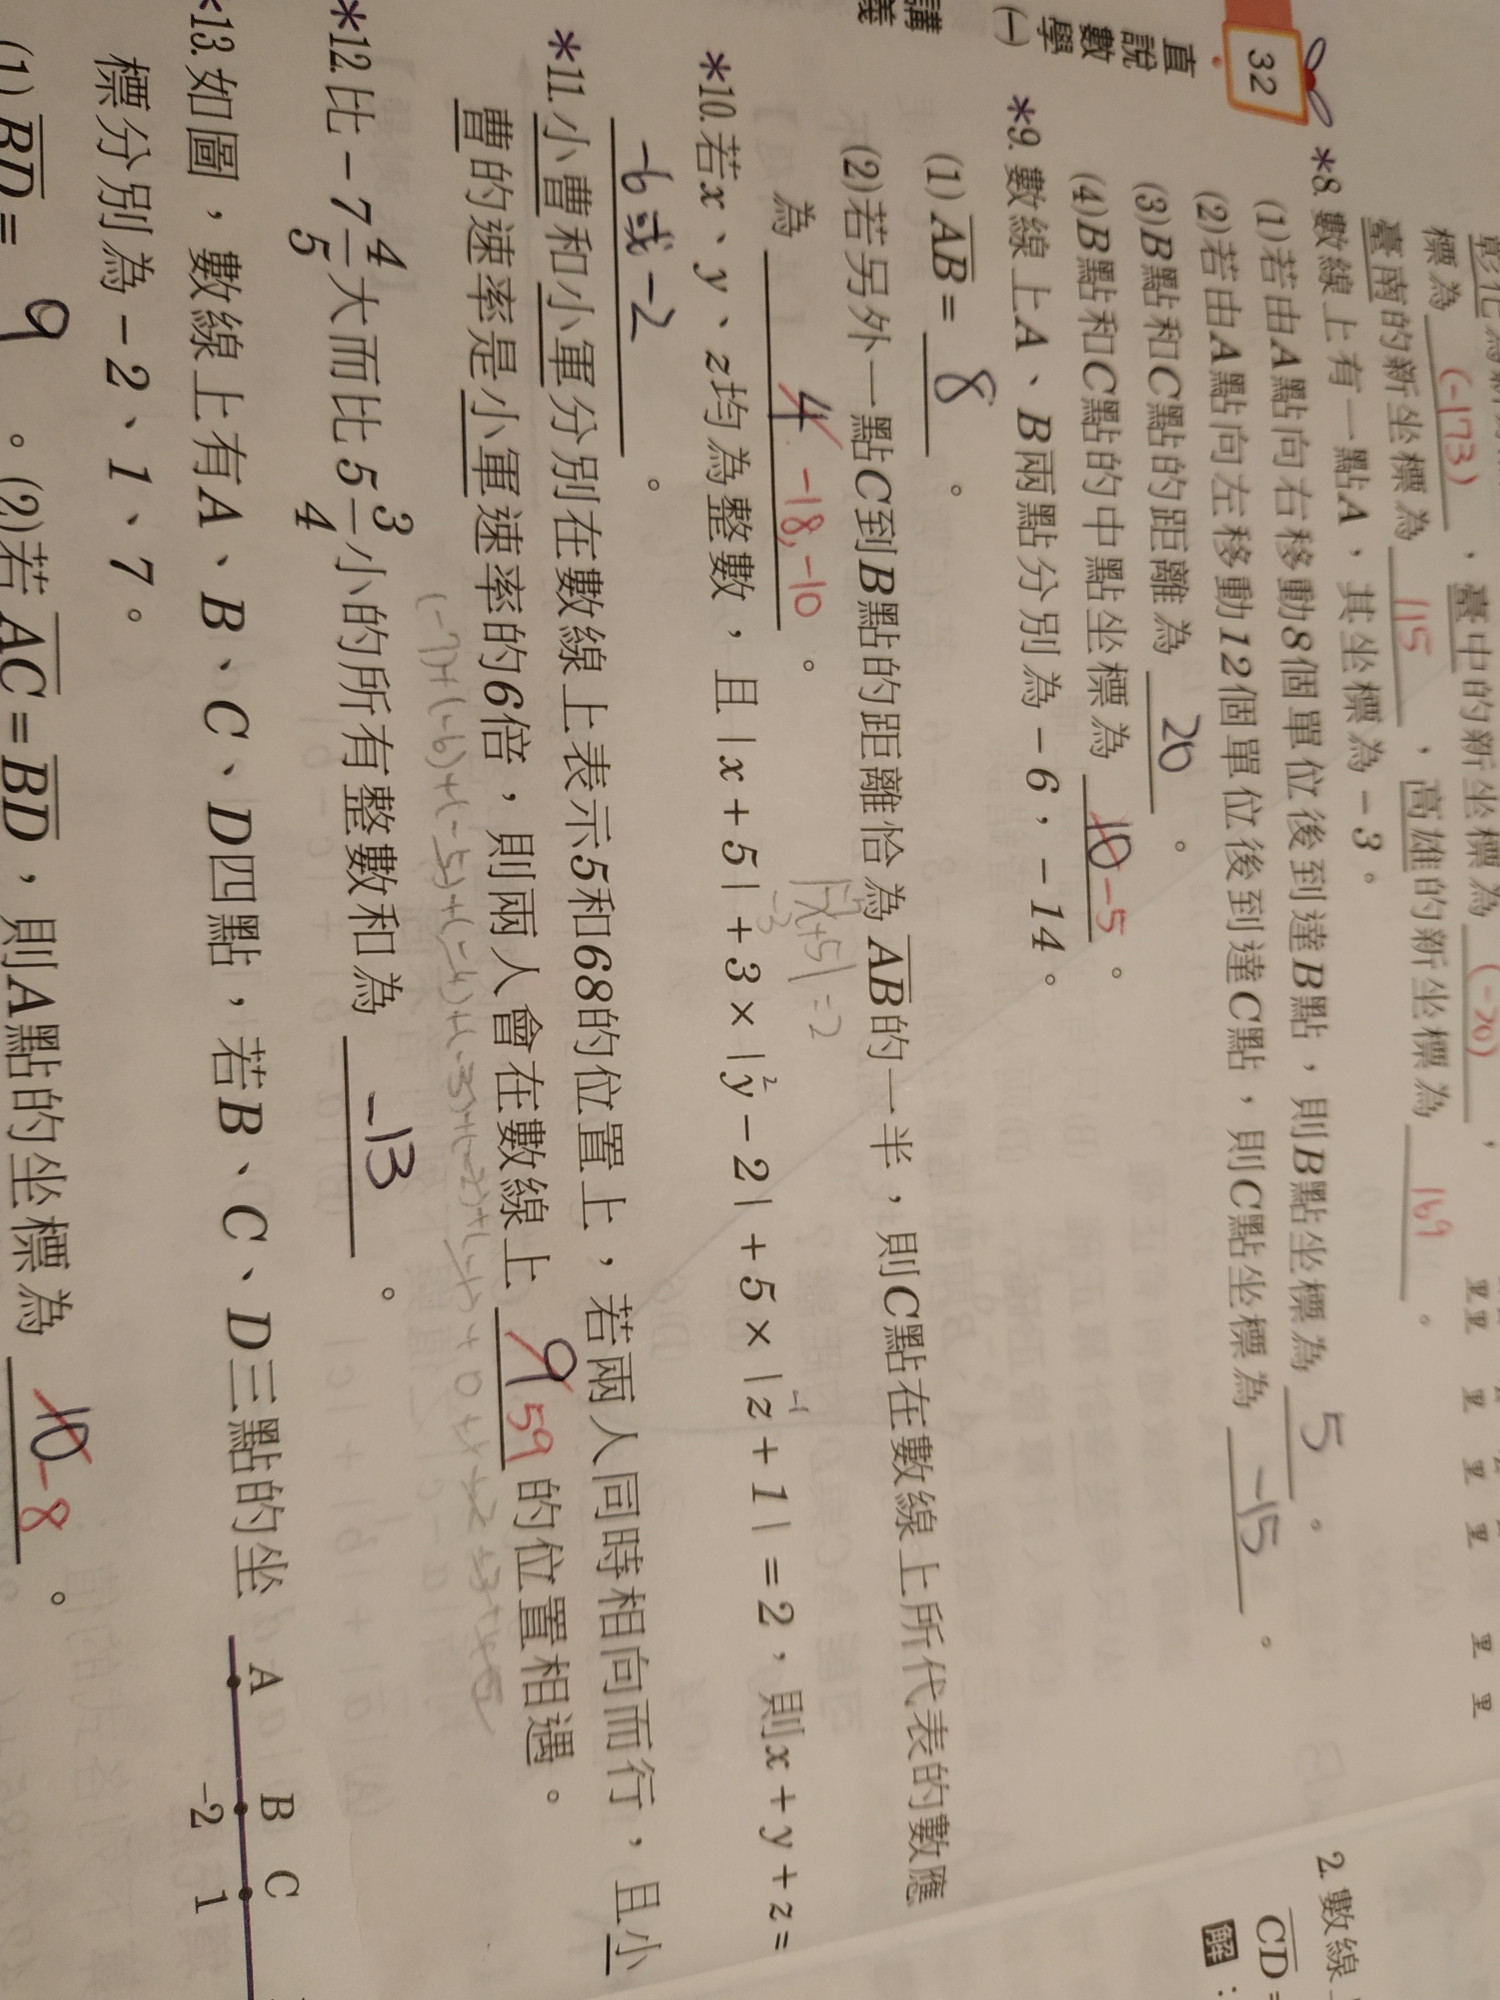 標為 (-173) 、臺中的新坐標為 (-20) ,
臺南的新坐標為 115 ,高雄的新坐標為 169 。
32
直說數學(一)
講義
*8. 數線上有一點A,其坐標為-3。
(1)若由A點向右移動8個單位後到達B點,則B點坐標為 5 。
(2)若由A點向左移動12個單位後到達C點,則C點坐標為 -15 。
(3)B點和C點的距離為 20 。
(4)B點和C點的中點坐標為 10 -5 。
*9. 數線上A、B兩點分別為-6,-14。
(1) AB = 8 。
(2)若另外一點C到B點的距離恰為AB的一半,則C點在數線上所代表的數應
為 4 -18,-10 。
|x+5|=2
-3
*10. 若x、y、z均為整數,且|x+5|+3×|y-2|+5×|z+1|=2,則x+y+z=
2
-1
-6或-2 。
*11. 小曹和小軍分別在數線上表示5和68的位置上,若兩人同時相向而行,且小
曹的速率是小軍速率的6倍,則兩人會在數線上 9 59 的位置相遇。
(-7)+(-6)+(-5)+(-4)+(-3)+(-2)+(-1)+0+1+2+3+4+5
*12. 比-7 4/5 大而比5 3/4 小的所有整數和為 -13 。
*13. 如圖,數線上有A、B、C、D四點,若B、C、D三點的坐
標分別為-2、1、7。
A B C
-2 1
(1) BD = 9 。(2)若AC=BD,則A點的坐標為 10 -8 。
2. 數線
CD=
解: